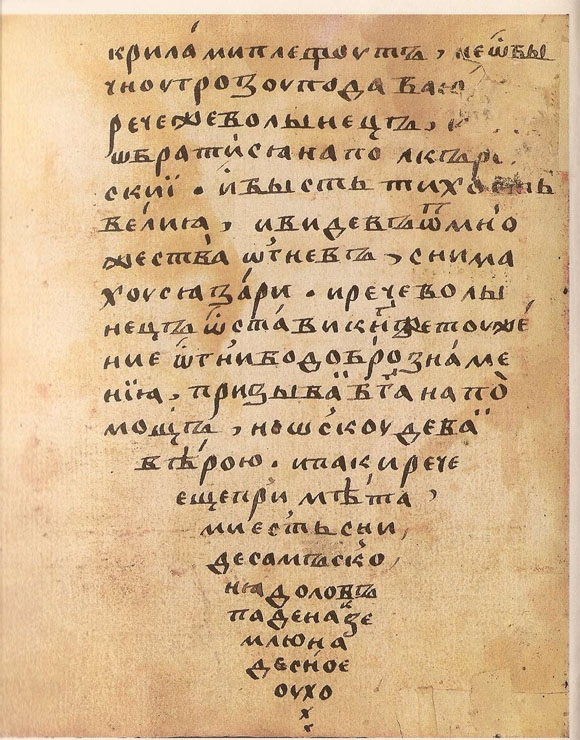 крила́ми плещоутъ, не ѿбы
чноу грозоу подаваю
рече же волынецъ,
ѡбрати́ся на полкъ
скиї. и́ бысть тихость
вели́ка, и видевъ ѿ мно
жества ѻ҆гневъ, снима
хоуся за́ри. и рече волы
нецъ ѿста́ви кн҃же
ние ѻ҆гни́ бо до́бро зна́ме
нїя, призыва́й бг҃а на по́
мощь, но ѡскоудева́й
вѣ́рою. и паки рече
еще при мѣ́та,
ми есть сни
де сам съ ско
ня доловъ
паде на зе
млю на
десное
оухо
х